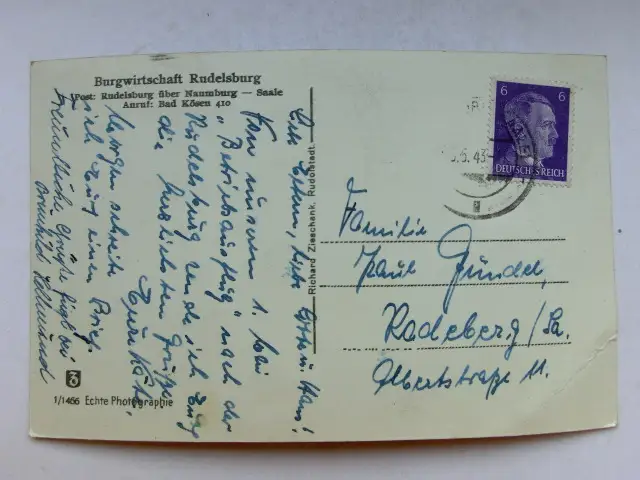 Burgwirtschaft Rudelsburg
Post: Rudelsburg über Naumburg — Saale
Anruf: Bad Kösen 410
Liebe Eltern, liebe
Von unserm 1. Mai
"Betriebsausflug" nach der
Rudelsburg sende ich Euch
die herzlichsten Grüße.
Eure Käte.
Morgen schreibe
ich Euch einen Brief.
Freundliche Grüße fügt bei
Hellmund
Richard Zieschank, Rudolstadt
6 6
DEUTSCHES REICH
.5.43
Familie
Paul Gündel,
Radeberg/Sa.
Albertstraße 11.
1/1466 Echte Photographie